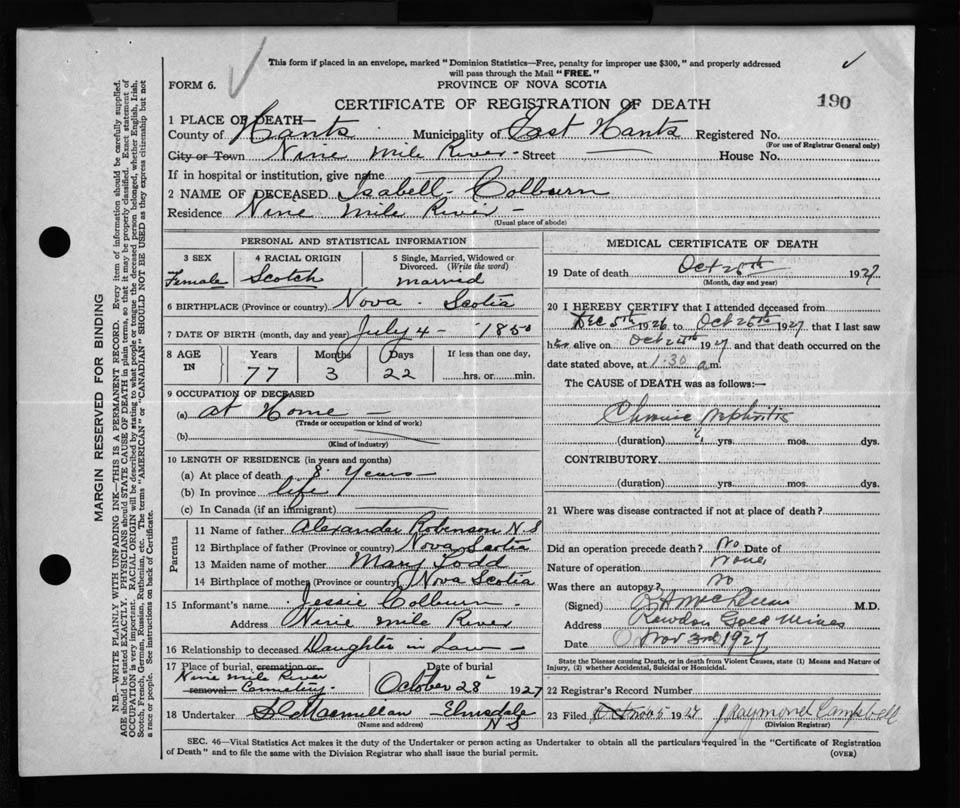 This form if placed in an envelope, marked "Dominion Statistics—Free, penalty for improper use $300," and properly addressed
will pass through the Mail "FREE."
FORM 6.
PROVINCE OF NOVA SCOTIA
CERTIFICATE OF REGISTRATION OF DEATH
190
1 PLACE OF DEATH—
County of Hants Municipality of East Hants Registered No.
(For use of Registrar General only)
City or Town Nine Mile River - Street House No.
If in hospital or institution, give name
2 NAME OF DECEASED Isabell - Colburn
Residence Nine Mile River -
(Usual place of abode)
PERSONAL AND STATISTICAL INFORMATION
3 SEX
Female
4 RACIAL ORIGIN
Scotch
5 Single, Married, Widowed or
Divorced. (Write the word)
married
6 BIRTHPLACE (Province or country) Nova Scotia
7 DATE OF BIRTH (month, day and year) July 4 - 1850
8 AGE
IN
Years
77
Months
3
Days
22
If less than one day,
hrs. or min.
9 OCCUPATION OF DECEASED
(a) at Home -
(Trade or occupation or kind of work)
(b)
(Kind of industry)
10 LENGTH OF RESIDENCE (in years and months)
(a) At place of death 8 Years -
(b) In province life
(c) In Canada (if an immigrant)
Parents
11 Name of father Alexander Robinson N S
12 Birthplace of father (Province or country) Nova Scotia
13 Maiden name of mother Mary Todd
14 Birthplace of mother (Province or country) Nova Scotia
15 Informant's name Jessie Colburn -
Address Nine Mile River
16 Relationship to deceased Daughter in Law -
17 Place of burial, cremation or
removal
Nine Mile River
Cemetery
Date of burial
October 28 1927
18 Undertaker Macmillan - Elmsdale
N S
(Name and address)
MEDICAL CERTIFICATE OF DEATH
19 Date of death Oct 1927
(Month, day and year)
20 I HEREBY CERTIFY that I attended deceased from
Dec 5th 1926 to Oct 1927 that I last saw
her alive on Oct 1927 and that death occurred on the
date stated above, at 1.30 a m.
The CAUSE of DEATH was as follows:—
Chronic Nephritis
(duration) ? yrs. mos. dys.
CONTRIBUTORY
(duration) yrs. mos. dys.
21 Where was disease contracted if not at place of death?
Did an operation precede death? No Date of
Nature of operation None
Was there an autopsy? No
(Signed) M.D.
Address Rawdon Gold Mines
Date Nov 3rd 1927
State the Disease causing Death, or in death from Violent Causes, state (1) Means and Nature of
Injury, (2) whether Accidental, Suicidal or Homicidal.
22 Registrar's Record Number
23 Filed Nov 5 1927 J Raymond Campbell
(Division Registrar)
SEC. 46—Vital Statistics Act makes it the duty of the Undertaker or person acting as Undertaker to obtain all the particulars required in the "Certificate of Registration
of Death" and to file the same with the Division Registrar who shall issue the burial permit.
(OVER)
MARGIN RESERVED FOR BINDING
N.B.—WRITE PLAINLY WITH UNFADING INK—THIS IS A PERMANENT RECORD. Every item of information should be carefully supplied.
AGE should be stated EXACTLY. PHYSICIANS should STATE CAUSE OF DEATH in plain terms, so that it may be properly classified. Exact statement of
OCCUPATION is very important. RACIAL ORIGIN will be described by stating to what people or tongue the deceased person belonged, whether English, Irish,
Scotch, French, German, Russian, Ruthenian, etc. The terms "AMERICAN" or "CANADIAN" SHOULD NOT BE USED as they express citizenship but not
a race or people. See instructions on back of Certificate.